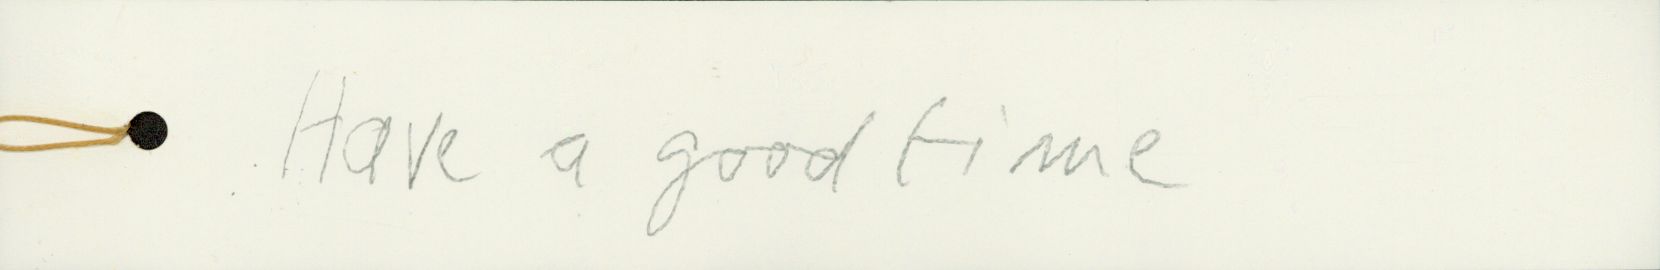 Have a good time